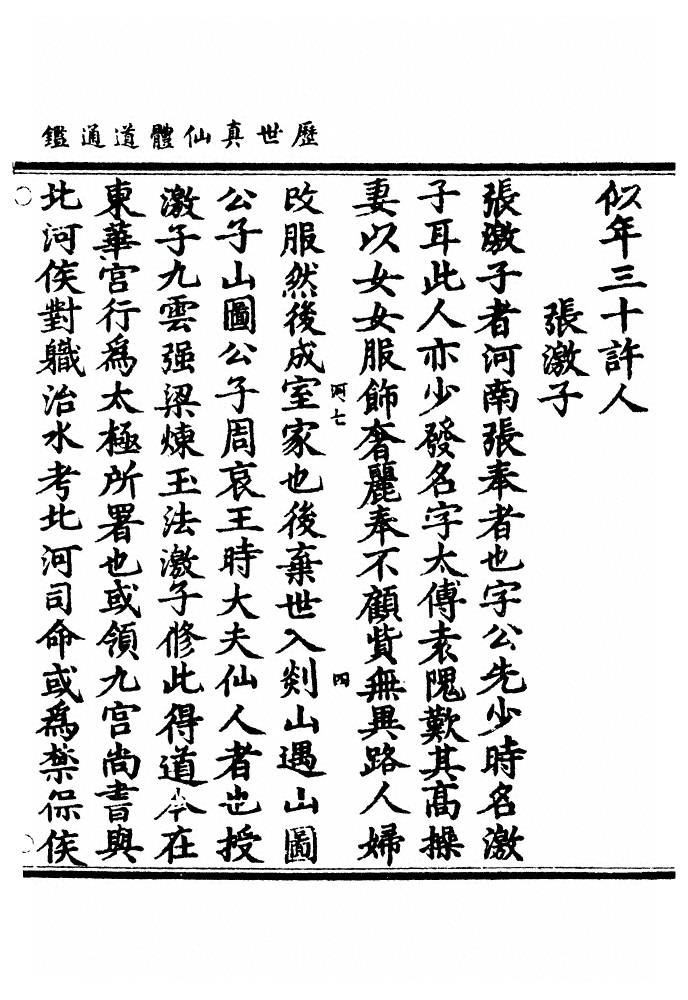 歷世真仙體道通鑑
似年三十許人
張激子
張激子者河南張奉者也字公先少時名激
子耳此人亦少發名字太傅袁隗歎其高操
妻以女女服飾奢麗奉不顧貲無異路人婦
改服然後成室家也後棄世入剡山遇山圖
公子山圖公子周哀王時大夫仙人者也授
激子九雲强梁煉玉法激子修此得道今在
東華宮行為太極所署也或領九宮尚書與
北河侯對職治水考北河司命或為禁保侯
河七
四